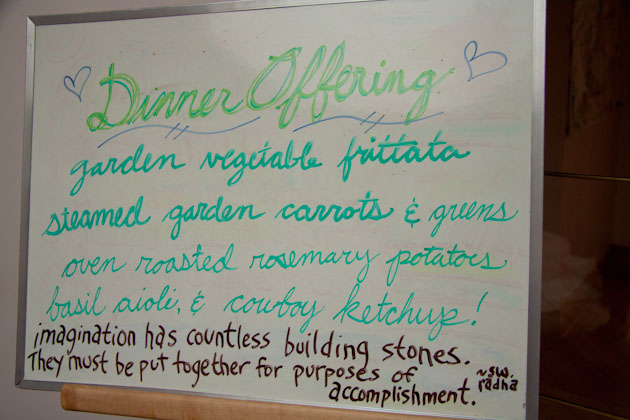 Dinner Offering
garden vegetable frittata
steamed garden carrots & greens
oven roasted rosemary potatoes
basil aioli, & cowboy ketchup!
imagination has countless building stones.
They must be put together for purposes of
accomplishment. ~sw.
radha